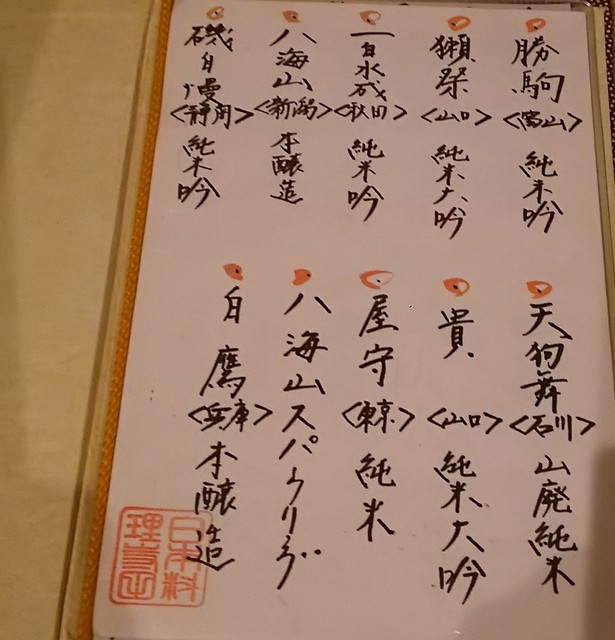 勝駒
〈富山〉
純米吟
獺祭
〈山口〉
純米大吟
一白水成
〈秋田〉
純米吟
八海山
〈新潟〉
本醸造
磯自慢
〈静岡〉
純米吟
天狗舞
〈石川〉
山廃純米
貴
〈山口〉
純米大吟
屋守
〈東京〉
純米
八海山スパークリング
白鷹
〈兵庫〉
本醸造
日本料
理